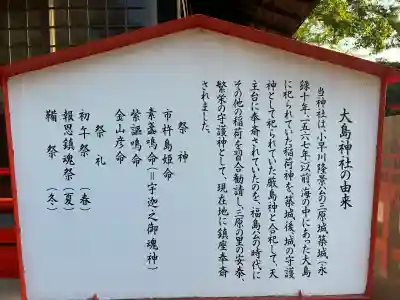 大島神社の由来
当神社は、小早川隆景公の三原城築城(永
録十年、一五六七年)以前、海の中にあった大島
に祀られていた稲荷神を、築城後、城の守護
神として祀られていた厳島神と合祀して、天
主台に奉斎されていたのを、福島公の時代に
その他の稲荷を習合勧請し、三原の里の安泰、
繁栄の守護神として、現在地に鎮座奉斎
されました。
祭神
市杵島姫命
素盞嗚命(=宇迦之御魂神)
紫謳鳴命
金山彦命
祭礼
初午祭(春)
報恩鎮魂祭(夏)
鞴祭(冬)